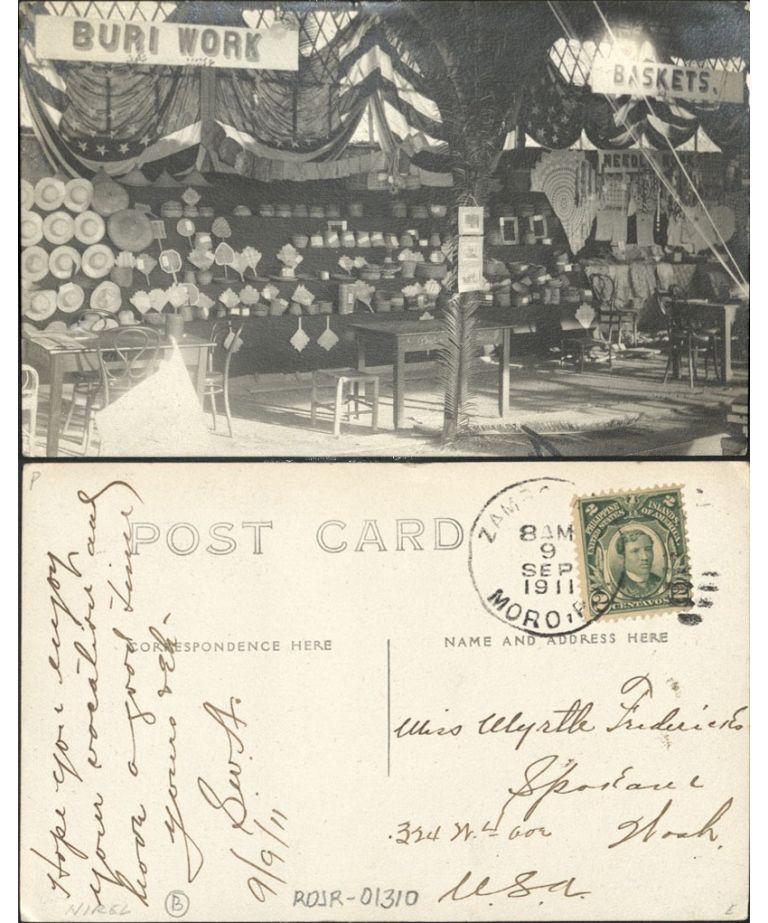 BURI WORK
BASKETS.
NEEDLE WORK
P
POST CARD
ZAMBO
8 AM
9
SEP
1911
MORO, P
2 PHILIPPINE ISLANDS 2
UNITED STATES OF AMERICA
2 CENTAVOS 2
CORRESPONDENCE HERE
NAME AND ADDRESS HERE
Hope you enjoy
your vacation and
have a good time
yours
9/9/11
Miss Myrtle Fredericks
Spokane
324 W. Ave Wash.
U.S.A.
NIREL
B
RDJR-01310